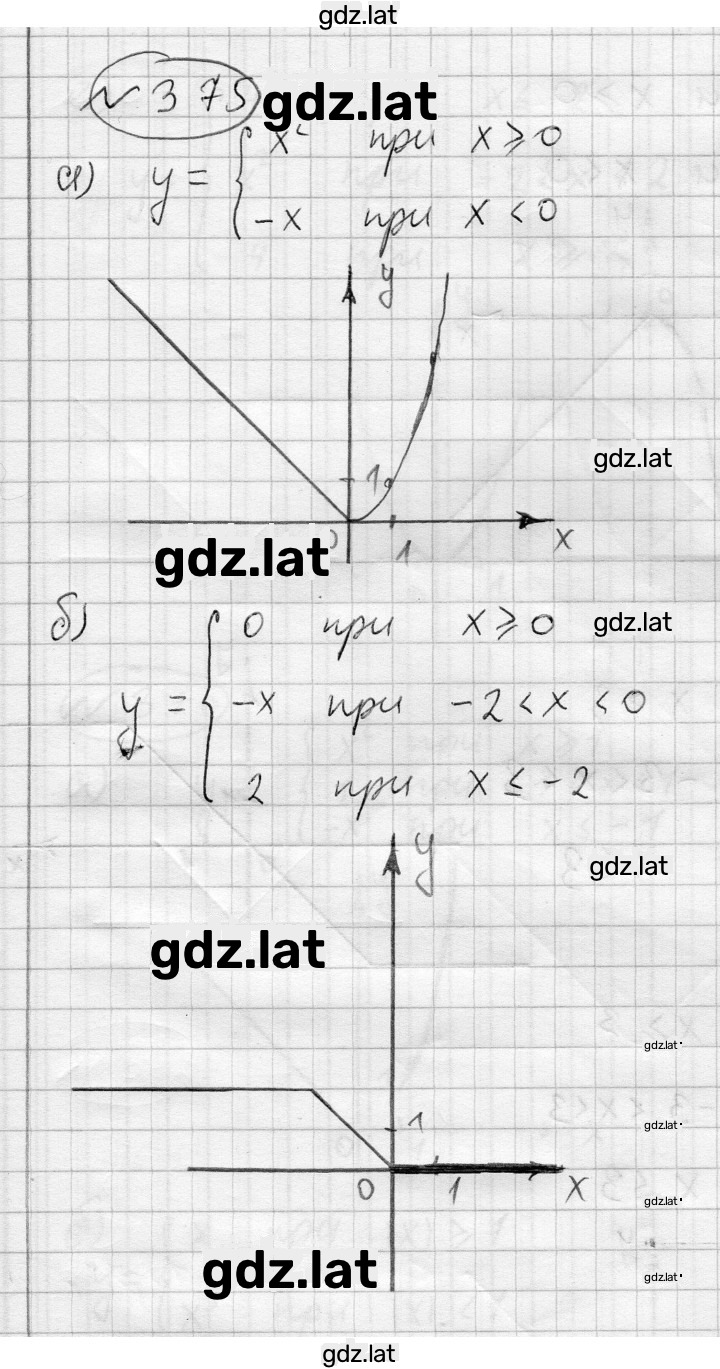 gdz.lat
№ 375 gdz.lat
а) y = { x² при x ⩾ 0
-x при x < 0
y
1
gdz.lat
0 1 x
gdz.lat
б) y = { 0 при x ⩾ 0
gdz.lat
-x при -2 < x < 0
2 при x ≤ -2
y
gdz.lat
gdz.lat
gdz.lat
1
gdz.lat
0 1 x
gdz.lat
gdz.lat
gdz.lat
gdz.lat